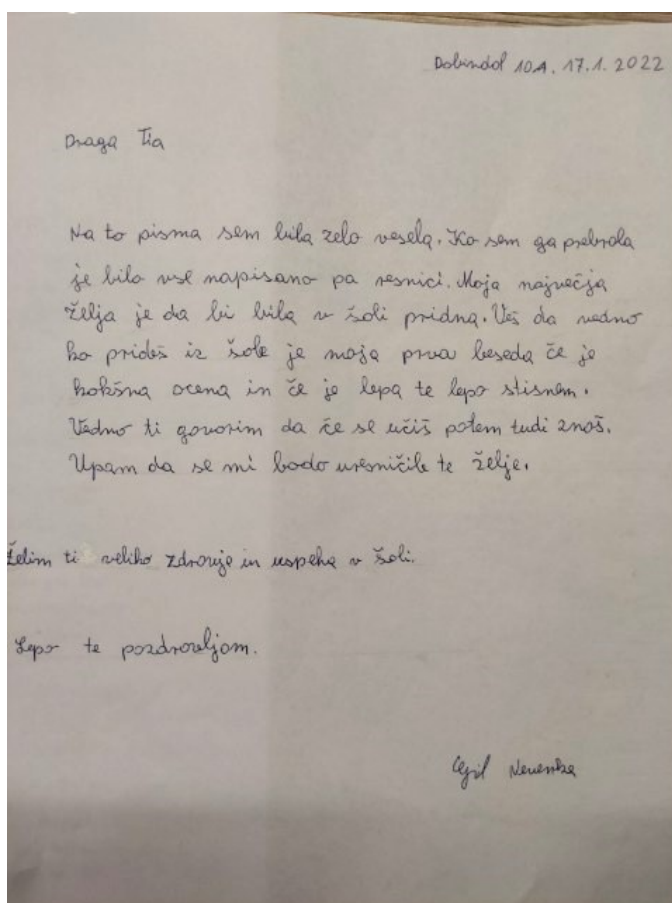 Dobindol 10A. 17.1.2022
Draga Tia
Na to pisma sem bila zelo vesela. Ko sem ga prebrala
je bilo vse napisano pa resnici. Moja največja
želja je da bi bila v šoli pridna. Veš da vedno
ko prideš iz šole je moja prva beseda če je
kokšna ocena in če je lepa te lepo stisnem.
Vedno ti govorim da če se učiš potem tudi znaš.
Upam da se mi bodo uresničile te želje.
Želim ti veliko zdravje in uspeha v šoli.
Lepo te pozdravljam.
Nevenka